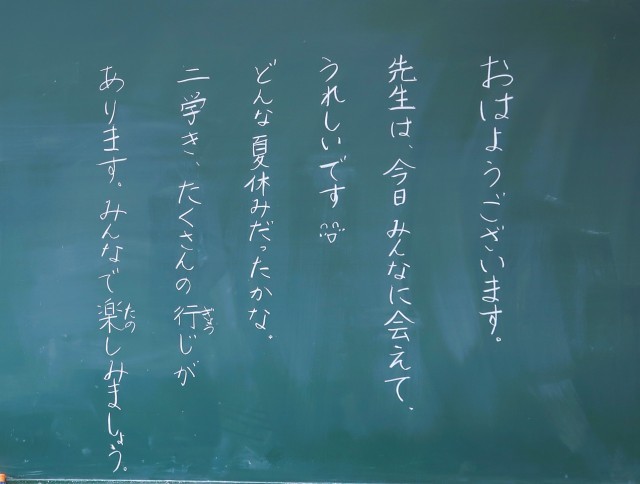 おはようございます。
先生は、今日みんなに会えて、
うれしいです
どんな夏休みだったかな。
二学き、たくさんの行じが
ぎょう
あります。みんなで楽しみましょう。
たの